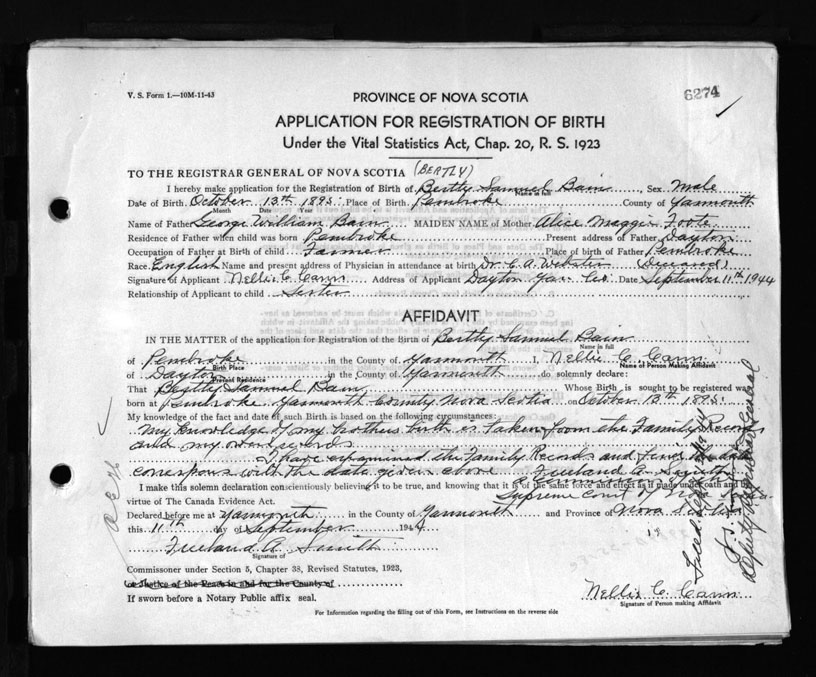 V. S. Form 1.—10M-11-43
6274
PROVINCE OF NOVA SCOTIA
APPLICATION FOR REGISTRATION OF BIRTH
Under the Vital Statistics Act, Chap. 20, R. S. 1923
(BERTLY)
TO THE REGISTRAR GENERAL OF NOVA SCOTIA
I hereby make application for the Registration of Birth of Bertly Samuel Bain Sex Male
Name in full
Date of Birth October 13th 1895 Place of Birth Pembroke County of Yarmouth
Month Date Year
Name of Father George William Bain MAIDEN NAME of Mother Alice Maggie Foote
Residence of Father when child was born Pembroke Present address of Father Dayton
Occupation of Father at Birth of child Farmer Place of birth of Father Pembroke
Race English Name and present address of Physician in attendance at birth Dr. C. A. Webster (Deceased)
Signature of Applicant Nellie C. Cann Address of Applicant Dayton Yar. Co. Date September 11th 1944
Relationship of Applicant to child Sister
AFFIDAVIT
IN THE MATTER of the application for Registration of the Birth of Bertly Samuel Bain
Name in full
of Pembroke in the County of Yarmouth I, Nellie C. Cann
Birth Place Name of Person Making Affidavit
of Dayton in the County of Yarmouth do solemnly declare:
Present Residence
That Bertly Samuel Bain Whose Birth is sought to be registered was
born at Pembroke Yarmouth County Nova Scotia on October 13th 1895
My knowledge of the fact and date of such Birth is based on the following circumstances:
My knowledge of my brothers birth as taken from the Family Records
and my own records
I have examined the Family Records and find the date
corespons with the date given above Freeland A. Smith
a Commissioner
I make this solemn declaration conscientiously believing it to be true, and knowing that it is of the same force and effect as if made under oath and by
Supreme Court of Nova Scotia
virtue of The Canada Evidence Act.
Declared before me at Yarmouth in the County of Yarmouth and Province of Nova Scotia
this 11th day of September 1944
Freeland A. Smith
Signature of
Commissioner under Section 5, Chapter 38, Revised Statutes, 1923,
or Justice of the Peace in and for the County of
If sworn before a Notary Public affix seal.
Nellie C. Cann
Signature of Person making Affidavit
For Information regarding the filling out of this Form, see Instructions on the reverse side
Deputy Registrar General